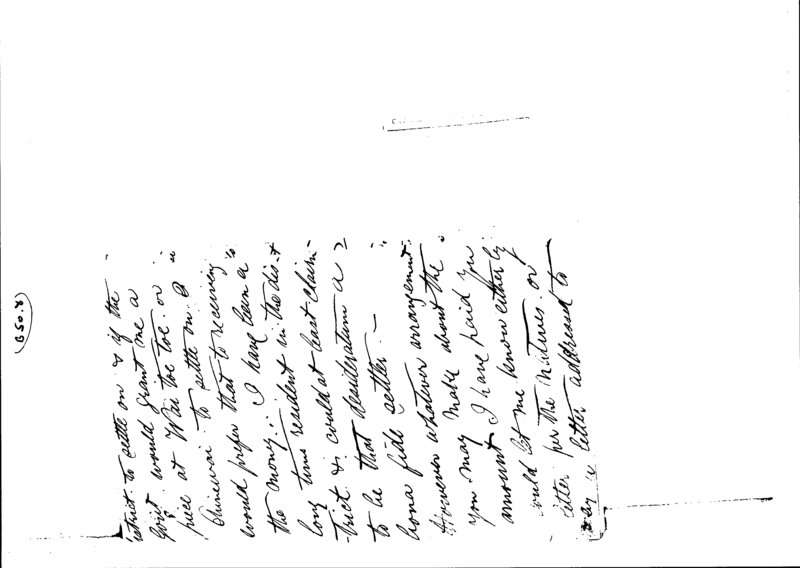 estrict to settle on & if the
Govt would grant me a
piece at Wai toe toe or
Ohinewai to settle on
would prefer that to receiving
the money. I have been a
long time resident in the dis-
trict & could at least claim
to be that desideratum a
bona fide settler.—
However whatever arrangement
you may make about the
amount I have paid you
could let me know either by
letter per the or
letter addressed to